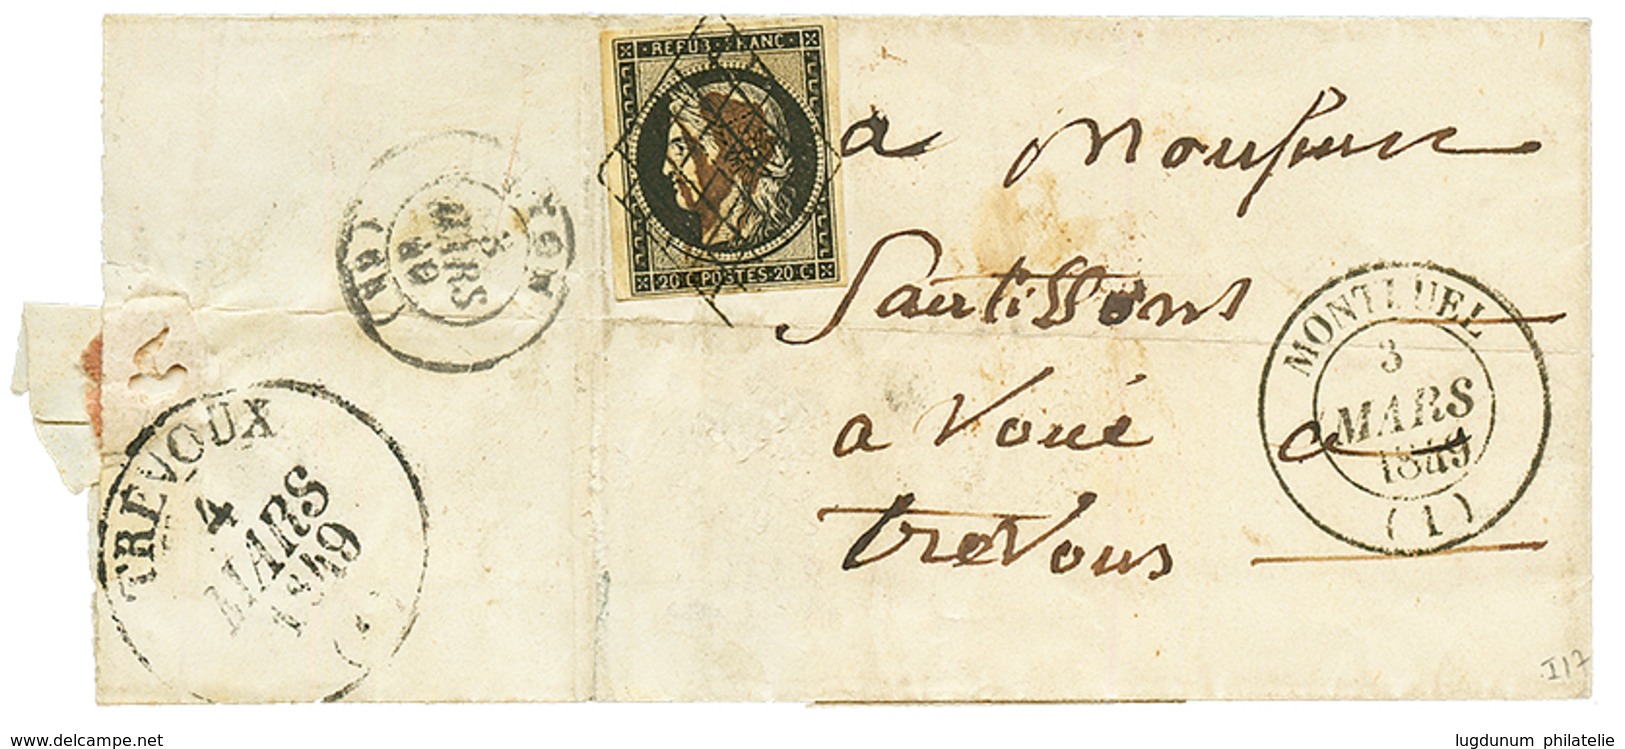 REPUB FRANC
20 C POSTES 20 C
a Monsieur
Santissons
a Voué a
treVous
MONTLUEL
3
MARS
1849
(1)
LYON
3
MARS
49
TREVOUX
4
MARS
1849
I17
www.delcampe.net
lugdunum philatelie